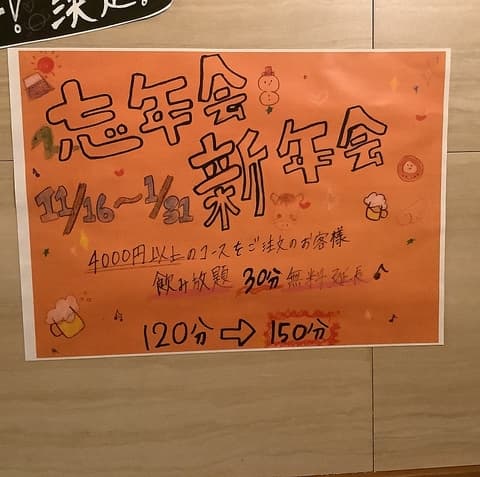 決定!
忘年会
新年会
11/16～1/31
4000円以上のコースをご注文のお客様
飲み放題 30分無料延長♪
120分⇨150分